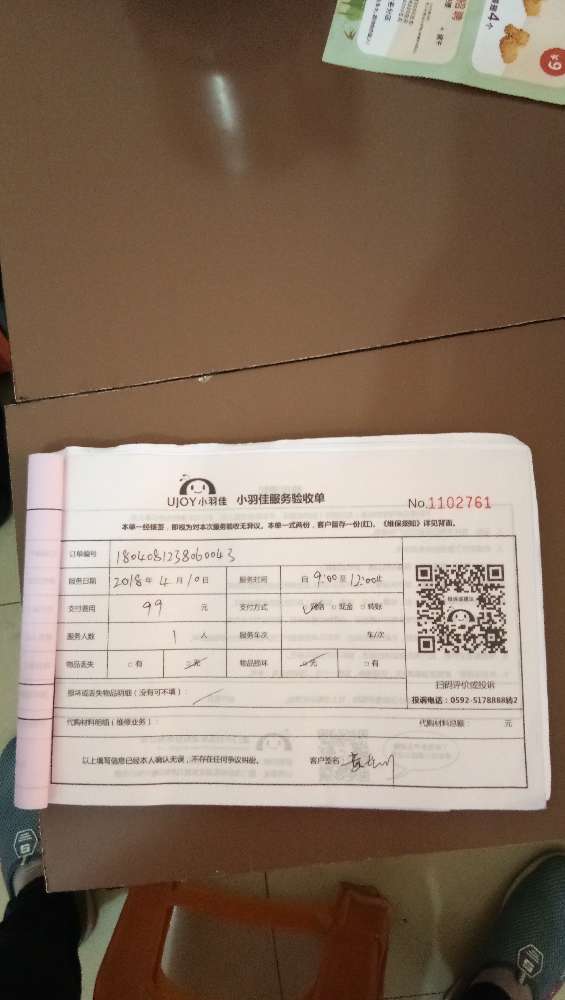 4个
¥9
UJOY小羽佳 小羽佳服务验收单
No.1102761
本单一经签签，即视为对本次服务验收无异议。本单一式两份，客户留存一份(红)。《维保须知》详见背面。
订单编号 1804081238060043
服务日期 2018年4月10日 服务时间 自9:00至12:00止
支付费用 99 元 支付方式 □网络 □现金 □转账
服务人数 1 人 服务车次 车/次
物品丢失 □有 □无 物品损坏 □无 □有
损坏或丢失物品明细（没有可不填）：
代购材料明细（维修业务）： 代购材料总额： 元
以上填写信息已经本人确认无误，不存在任何争议纠纷。 客户签名
投诉或建议
扫码评价或投诉
投诉电话：0592-5178888转2